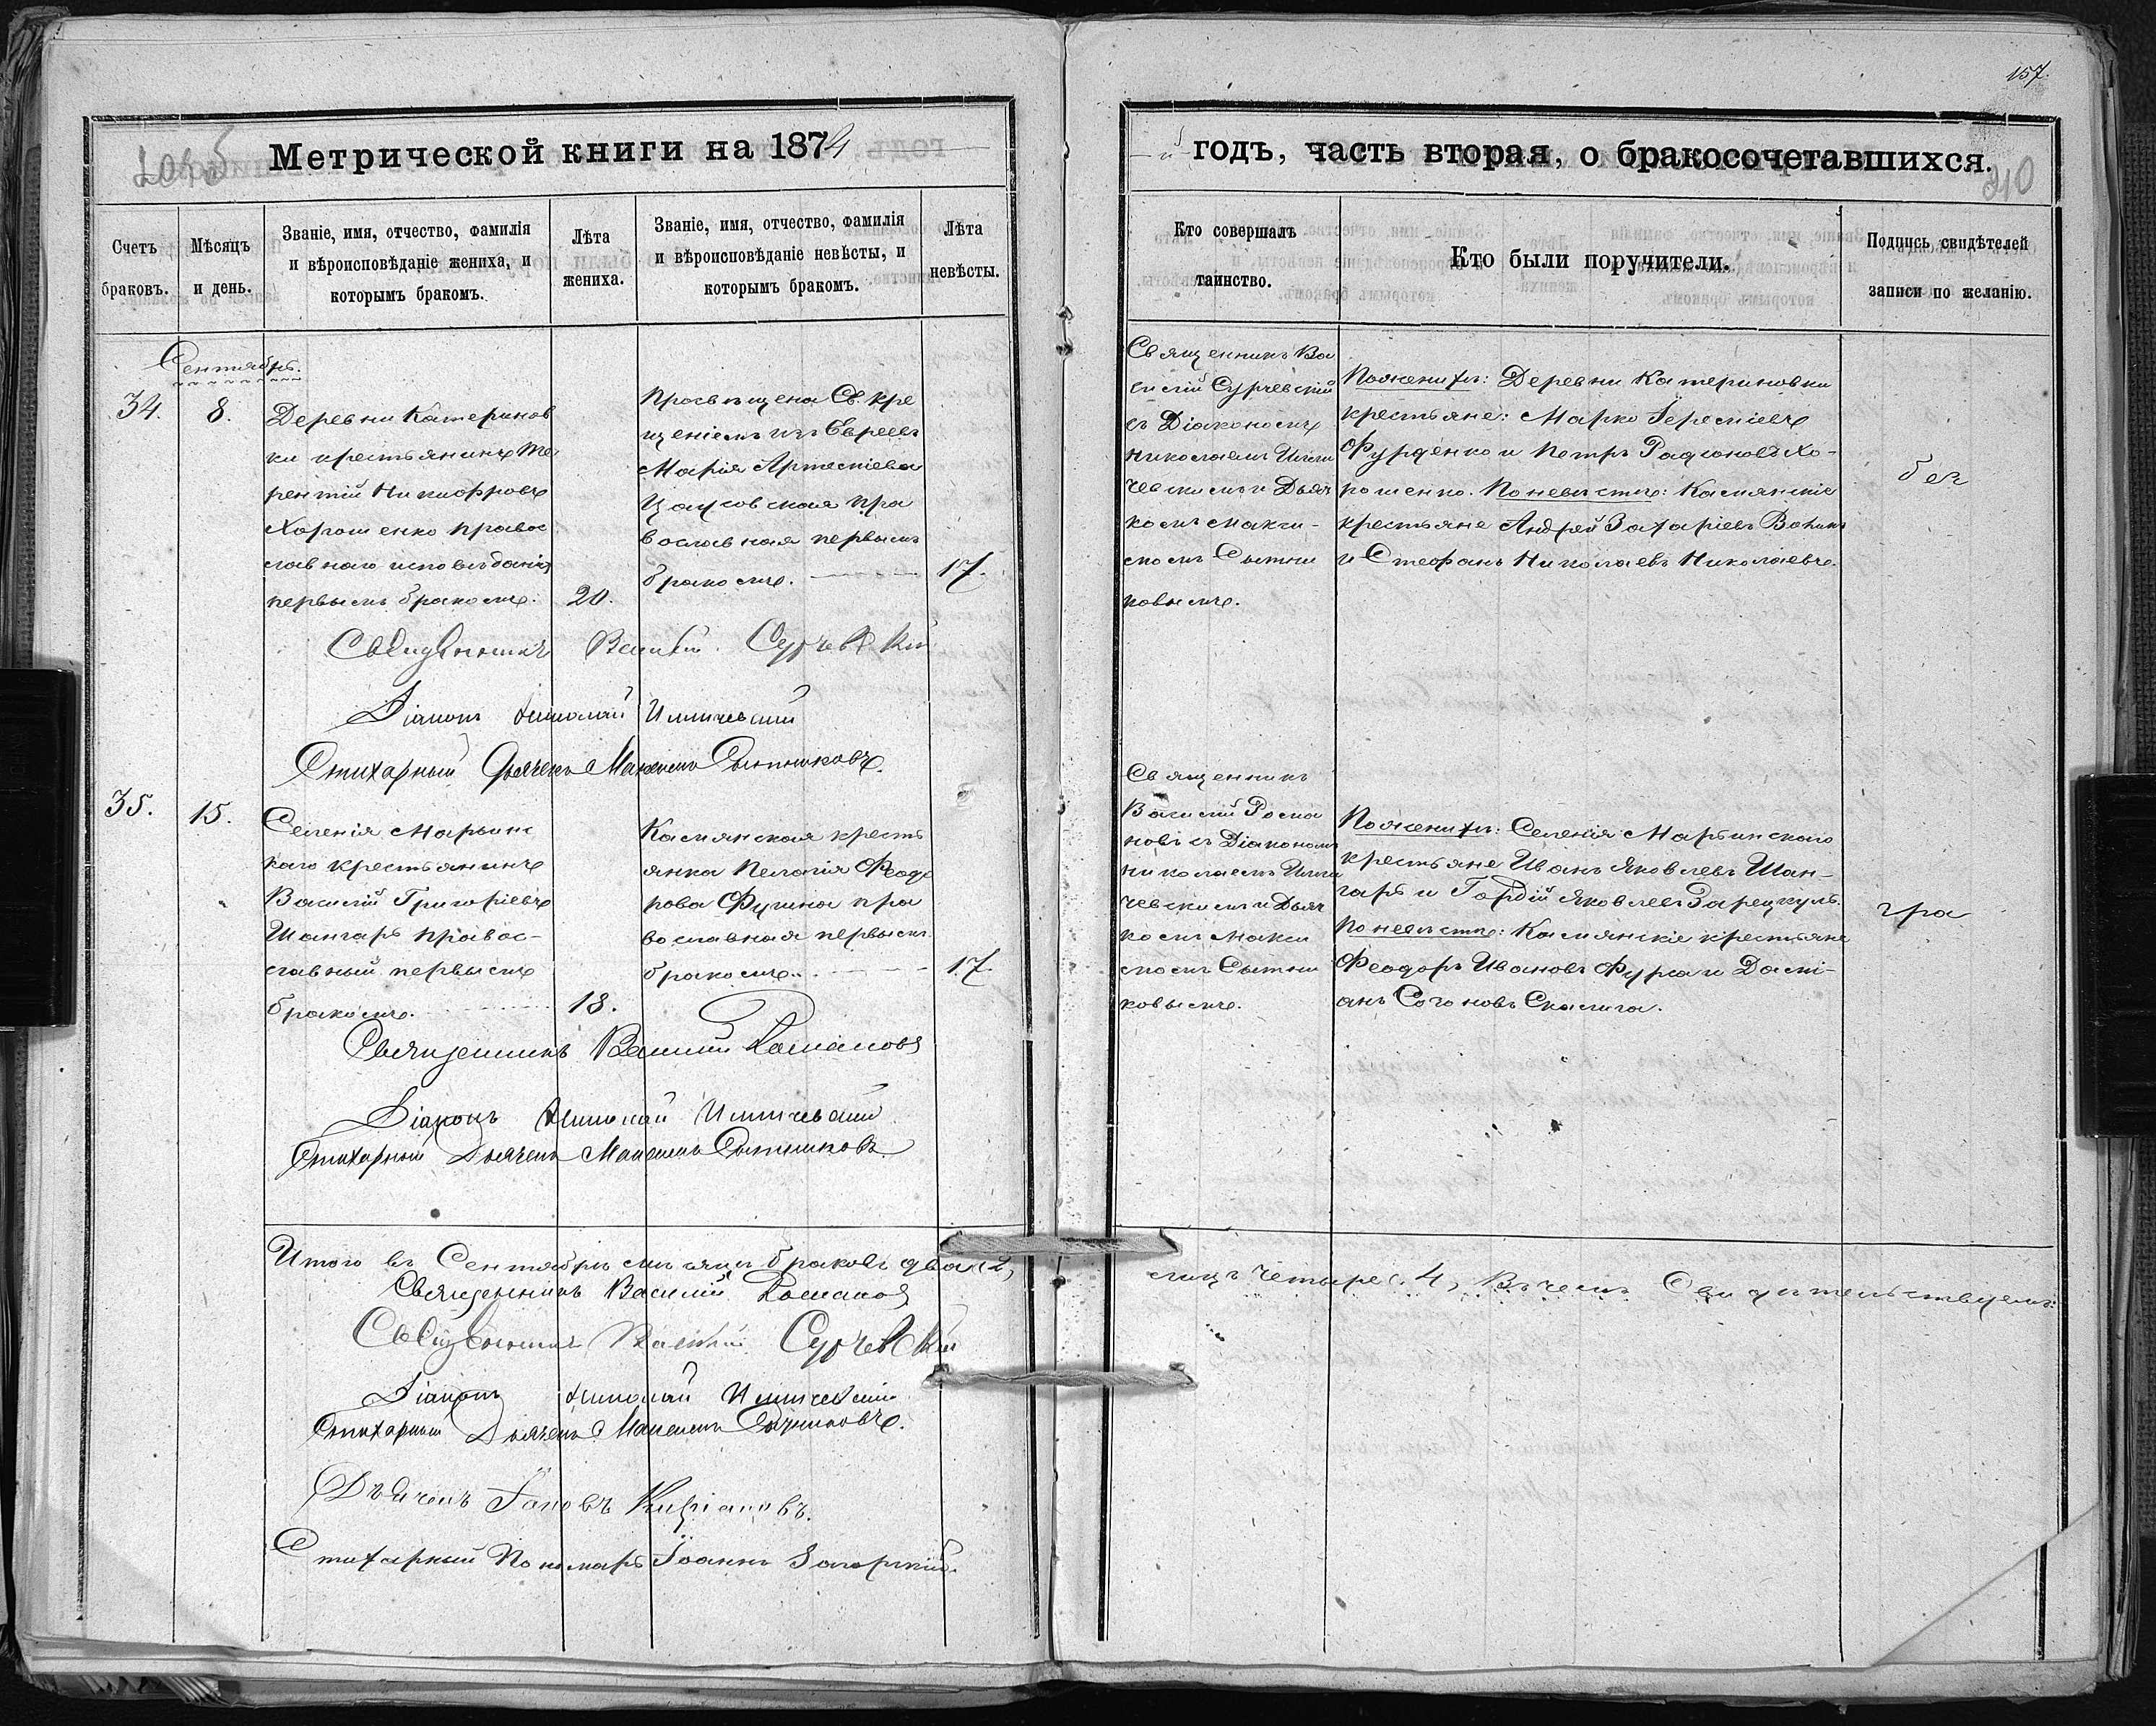 157.
Метрической книги на 1874
годъ, часть вторая, о бракосочетавшихся.
210
Счетъ браковъ.
Мѣсяцъ и день.
Званіе, имя, отчество, фамилія и вѣроисповѣданіе жениха, и которымъ бракомъ.
Лѣта жениха.
Званіе, имя, отчество, фамилія и вѣроисповѣданіе невѣсты, и которымъ бракомъ.
Лѣта невѣсты.
Кто совершалъ таинство.
Кто были поручители.
Подпись свидѣтелей записи по желанію.
Сентябрь.
34.
8.
Деревни Катеринов
ки крестьянинъ Те
рентій Никифоровъ
Хорошенко правос
лавнаго исповѣданія
первымъ бракомъ.
20.
Просвѣщена Св. кре
щеніемъ изъ Евреевъ
Марія Артеміева
православная первымъ
бракомъ.
17.
Священникъ Ва
силій Сурчевскій
съ Діакономъ
Николаемъ Иличи
чевскимъ и Дьяч
комъ Макси-
момъ Сытни
ковымъ.
По женихѣ: Деревни Катериновки
крестьяне: Марко Іереміевъ
Фурденко и Петръ Радіоновъ Хо-
рошенко. По невѣстѣ: Камянскіе
крестьяне Андрей Захаріевъ
и Стефанъ Николаевъ Николаевъ.
Священникъ Василій Сурчевскій
Діаконъ Николай
Стихарный Дьячекъ Максимъ Сытниковъ.
35.
15.
Селенія Марьинс
каго крестьянинъ
Василій Григоріевъ
Шангарь правос-
лавный первымъ
бракомъ.
18.
Камянская кресть
янка Пелагія Феодо
рова Фурина пра
вославная первымъ
бракомъ.
17.
Священникъ
Василій Рома
новъ съ Діакономъ
Николаемъ
чевскимъ и Дьяч
комъ Макси
момъ Сытни
ковымъ.
По женихѣ: Селенія Марьинскаго
крестьяне Иванъ Яковлевъ Шан-
гарь и Гордій Яковлевъ
По невѣстѣ: Камянскіе крестьяне
Феодоръ Ивановъ Фурса и Домі-
анъ
Священникъ Василій Романовъ
Діаконъ Николай
Стихарный Дьячекъ Максимъ Сытниковъ
Итого въ Сентябрѣ мѣсяцѣ браковъ два (2,
лицъ четыре (4, Въ чемъ Свидѣтельствуемъ:
Священникъ Василій Романовъ
Священникъ Василій Сурчевскій
Діаконъ Николай
Стихарный Дьячекъ Максимъ Сытниковъ.
Дьячекъ Іаковъ Кипріановъ.
Стихарный Пономарь Іоаннъ Загорскій.